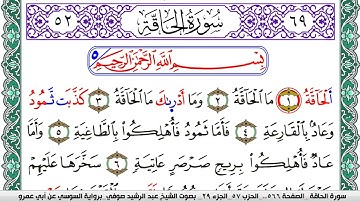 ٦٩ سُورَةُ الحَاقَّةِ ٥٢
بِسْمِ اللَّهِ الرَّحْمَٰنِ الرَّحِيمِ ٥
اَلْحَاقَّةُ ١ مَا اَلْحَاقَّةُ ٢ وَمَا أَدْرِىٰكَ مَا اَلْحَاقَّةُ ٣ كَذَّبَت ثَّمُودُ
وَعَادُۢ بِالْقَارِعَةِ ٤ فَأَمَّا ثَمُودُ فَأُهْلِكُواْ بِالطَّاغِيَةِ ٥ وَأَمَّا
عَادٌ فَأُهْلِكُواْ بِرِيحٍ صَرْصَرٍ عَاتِيَةٍ ٦ سَخَّرَهَا عَلَيْهِمْ
سورة الحاقة . الصفحة ٥٦٦ .. الحزب ٥٧ الجزء ٢٩ . بصوت الشيخ عبد الرشيد صوفي برواية السوسي عن أبي عمرو